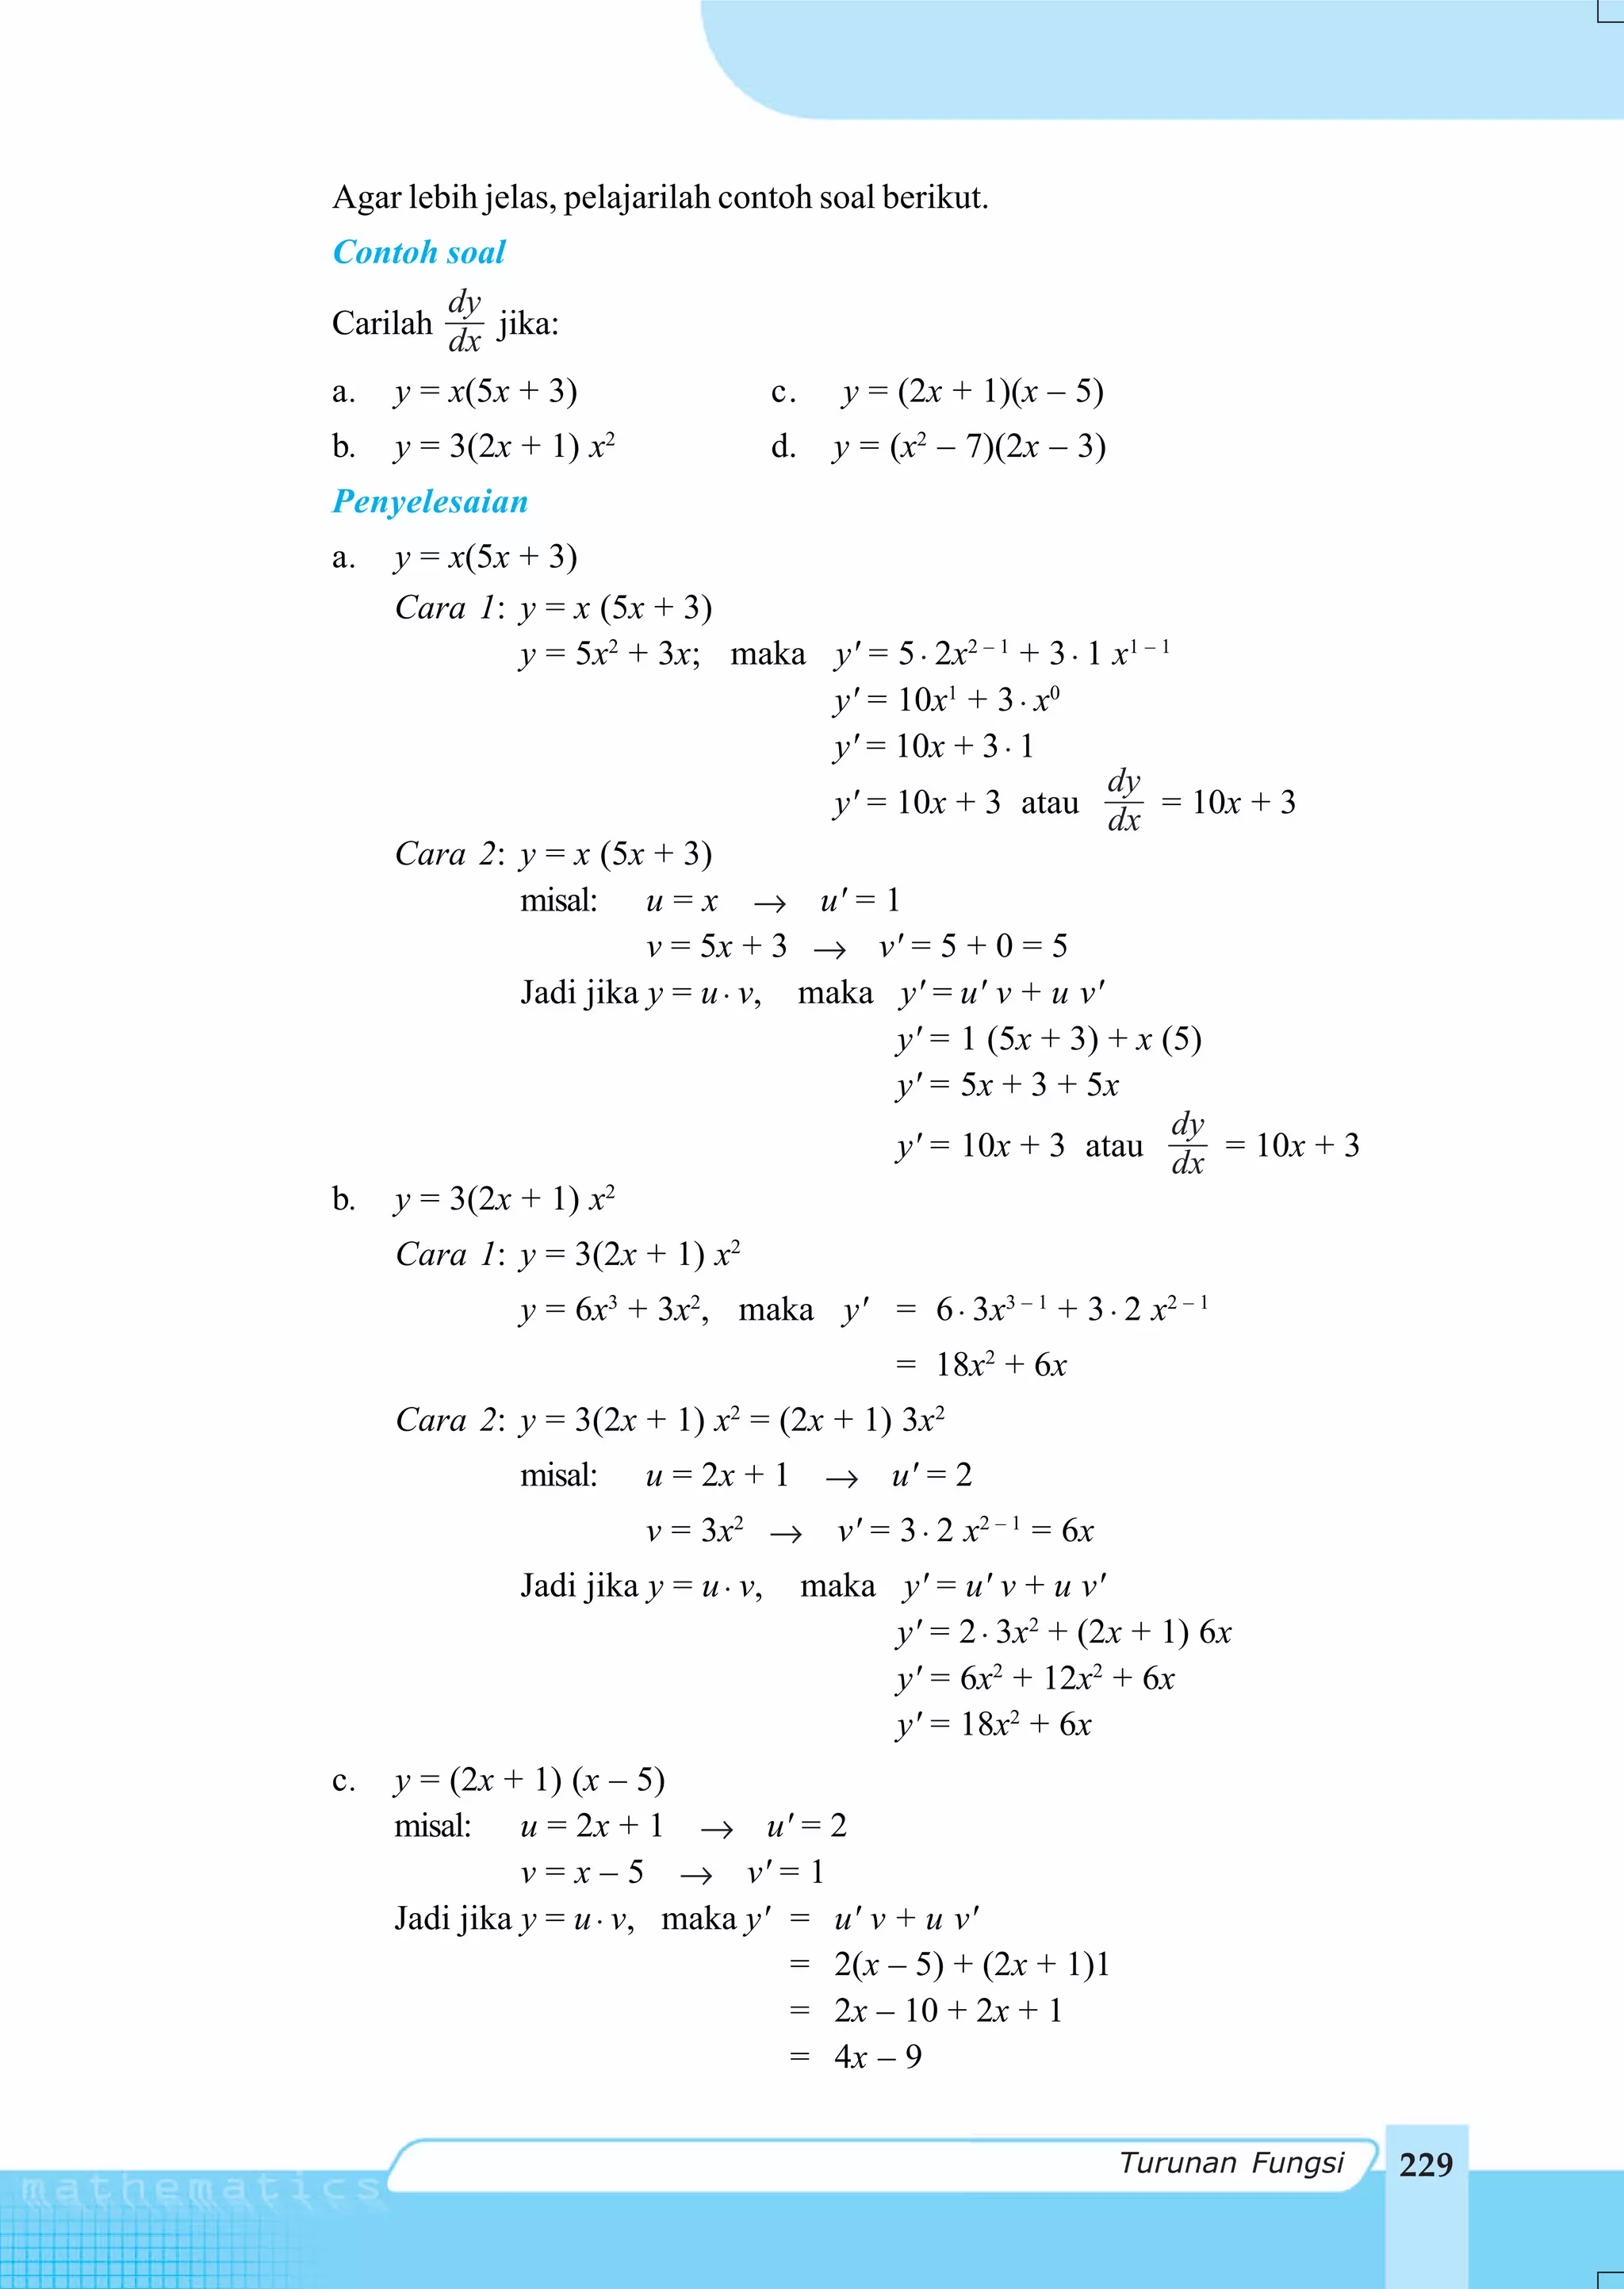 Agar lebih jelas, pelajarilah contoh soal berikut.
Contoh soal
Carilah dy/dx jika:
a. y = x(5x + 3) c. y = (2x + 1)(x – 5)
b. y = 3(2x + 1) x² d. y = (x² – 7)(2x – 3)
Penyelesaian
a. y = x(5x + 3)
Cara 1: y = x (5x + 3)
y = 5x² + 3x; maka y′ = 5 · 2x²⁻¹ + 3 · 1 x¹⁻¹
y′ = 10x¹ + 3 · x⁰
y′ = 10x + 3 · 1
y′ = 10x + 3 atau dy/dx = 10x + 3
Cara 2: y = x (5x + 3)
misal: u = x → u′ = 1
v = 5x + 3 → v′ = 5 + 0 = 5
Jadi jika y = u · v, maka y′ = u′ v + u v′
y′ = 1 (5x + 3) + x (5)
y′ = 5x + 3 + 5x
y′ = 10x + 3 atau dy/dx = 10x + 3
b. y = 3(2x + 1) x²
Cara 1: y = 3(2x + 1) x²
y = 6x³ + 3x², maka y′ = 6 · 3x³⁻¹ + 3 · 2 x²⁻¹
= 18x² + 6x
Cara 2: y = 3(2x + 1) x² = (2x + 1) 3x²
misal: u = 2x + 1 → u′ = 2
v = 3x² → v′ = 3 · 2 x²⁻¹ = 6x
Jadi jika y = u · v, maka y′ = u′ v + u v′
y′ = 2 · 3x² + (2x + 1) 6x
y′ = 6x² + 12x² + 6x
y′ = 18x² + 6x
c. y = (2x + 1) (x – 5)
misal: u = 2x + 1 → u′ = 2
v = x – 5 → v′ = 1
Jadi jika y = u · v, maka y′ = u′ v + u v′
= 2(x – 5) + (2x + 1)1
= 2x – 10 + 2x + 1
= 4x – 9
Turunan Fungsi 229
mathematics